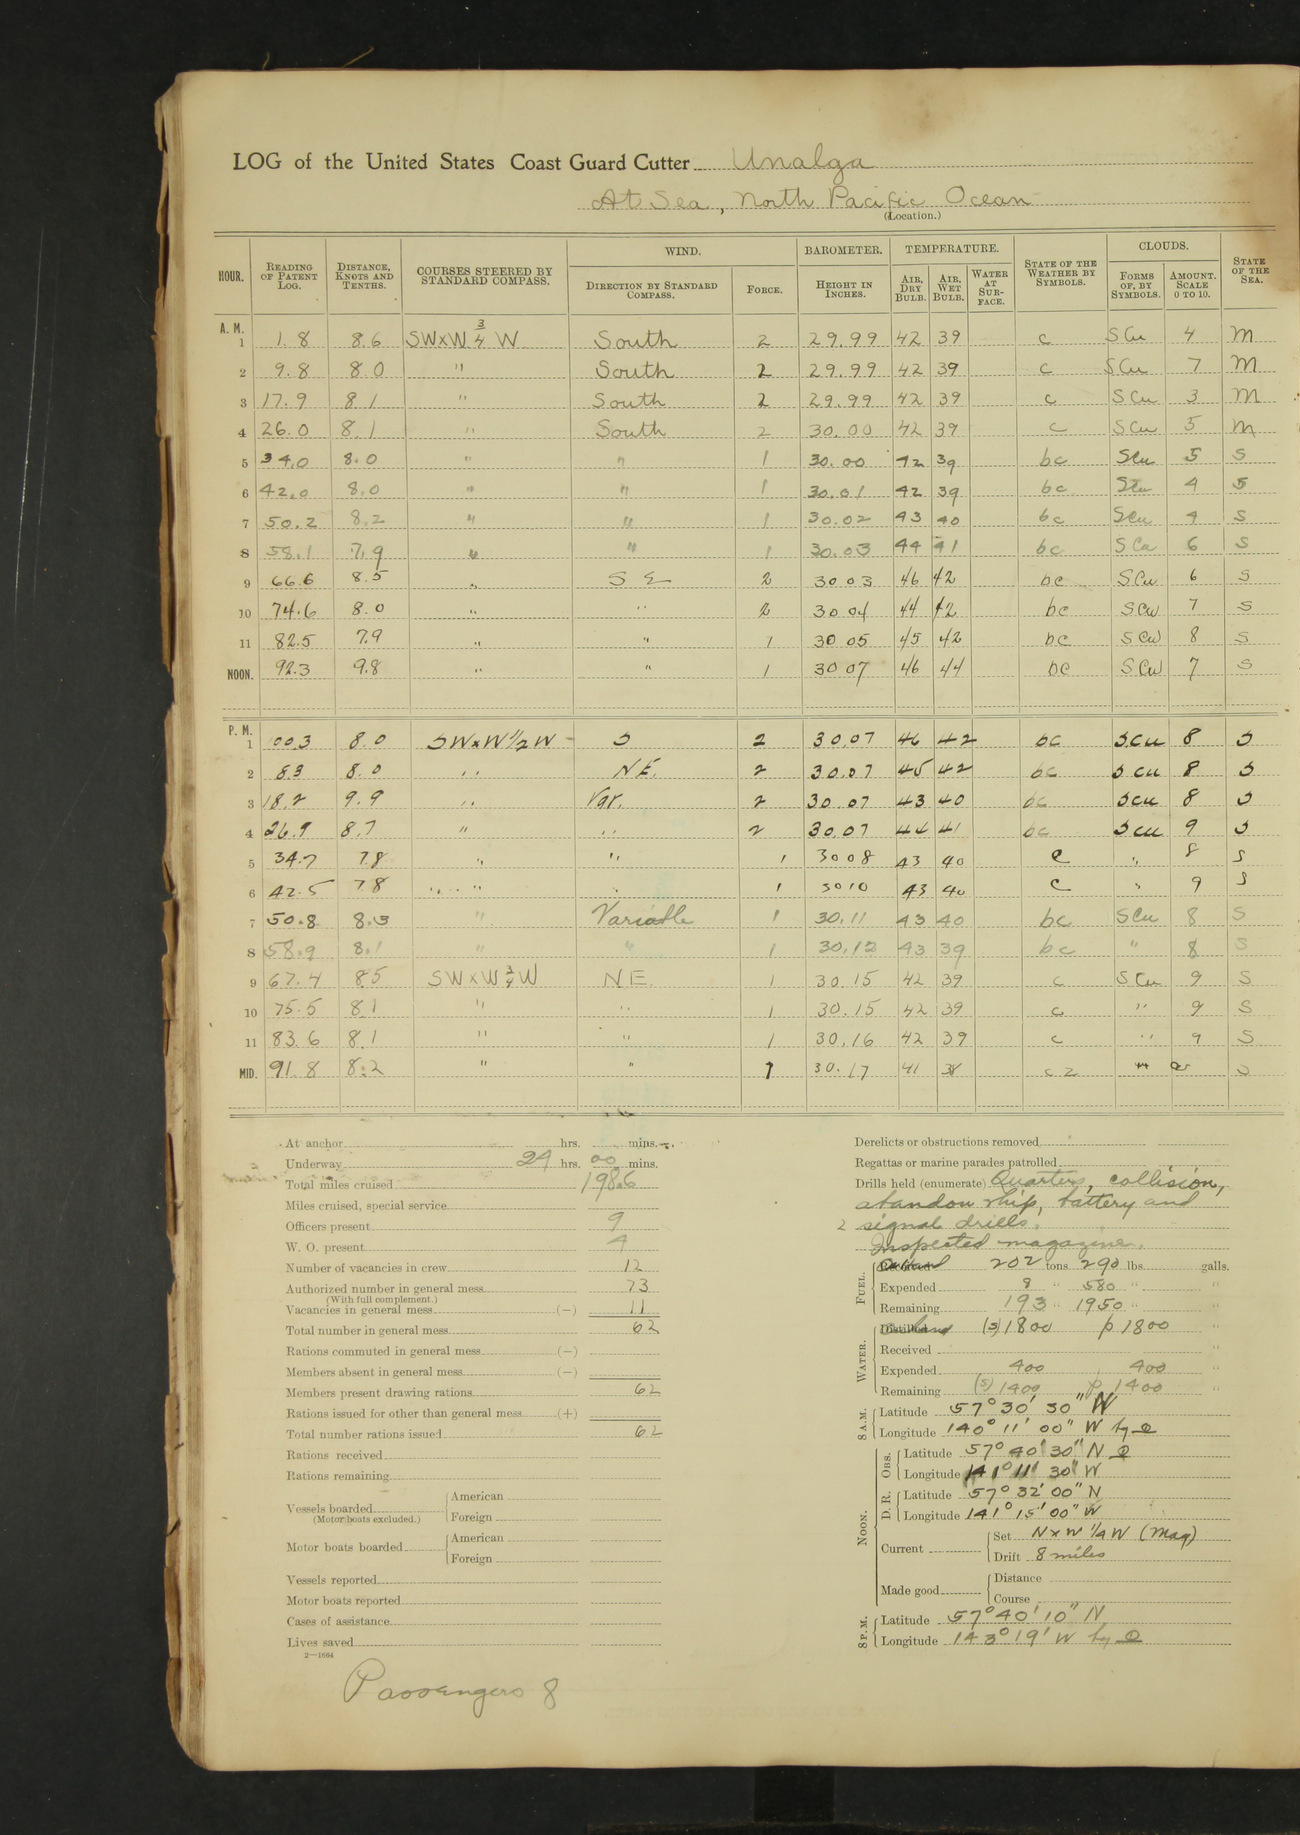 LOG of the United States Coast Guard Cutter Unalga
At Sea, North Pacific Ocean
(Location.)
HOUR. READING OF PATENT LOG. DISTANCE, KNOTS AND TENTHS. COURSES STEERED BY STANDARD COMPASS. WIND. DIRECTION BY STANDARD COMPASS. FORCE. BAROMETER. HEIGHT IN INCHES. TEMPERATURE. AIR, DRY BULB. AIR, WET BULB. WATER AT SURFACE. STATE OF THE WEATHER BY SYMBOLS. CLOUDS. FORMS OF, BY SYMBOLS. AMOUNT. SCALE 0 TO 10. STATE OF THE SEA.
A. M.
1 1.8 8.6 SWxW 3/4 W South 2 29.99 42 39 c SCu 4 M
2 9.8 8.0 " South 2 29.99 42 39 c SCu 7 M
3 17.9 8.1 " South 2 29.99 42 39 c SCu 3 M
4 26.0 8.1 " South 2 30.00 42 39 c SCu 5 M
5 34.0 8.0 " " 1 30.00 42 39 bc SCu 5 S
6 42.0 8.0 " " 1 30.01 42 39 bc SCu 4 S
7 50.2 8.2 " " 1 30.02 43 40 bc SCu 4 S
8 58.1 7.9 " " 1 30.03 44 41 bc SCu 6 S
9 66.6 8.5 " SE 2 30 03 46 42 bc SCu 6 S
10 74.6 8.0 " " 2 30 04 44 42 bc SCu 7 S
11 82.5 7.9 " " 1 30 05 45 42 bc SCu 8 S
NOON. 92.3 9.8 " " 1 30 07 46 44 bc SCu 7 S
P. M.
1 00.3 8.0 SWxW 1/2 W S 2 30.07 46 42 bc SCu 8 S
2 8.3 8.0 " NE. 2 30.07 45 42 bc SCu 8 S
3 18.2 9.9 " Var. 2 30 07 43 40 bc SCu 8 S
4 26.9 8.7 " " 2 30.07 44 41 bc SCu 9 S
5 34.7 7.8 " " 1 30 08 43 40 c " 8 S
6 42.5 7.8 " " 1 30 10 43 40 c " 9 S
7 50.8 8.3 " Variable 1 30.11 43 40 bc SCu 8 S
8 58.9 8.1 " " 1 30.12 43 39 bc " 8 S
9 67.4 8.5 SWxW 3/4 W NE. 1 30.15 42 39 c SCu 9 S
10 75.5 8.1 " " 1 30.15 42 39 c " 9 S
11 83.6 8.1 " " 1 30.16 42 39 c " 9 S
MID. 91.8 8.2 " " 1 30.17 41 38 cz " S
At anchor hrs. mins.
Underway 24 hrs. 00 mins.
Total miles cruised 198.6
Miles cruised, special service
Officers present 9
W. O. present 4
Number of vacancies in crew 12
Authorized number in general mess 73
(With full complement.)
Vacancies in general mess (—) 11
Total number in general mess 62
Rations commuted in general mess (—)
Members absent in general mess (—)
Members present drawing rations 62
Rations issued for other than general mess (+)
Total number rations issued 62
Rations received
Rations remaining
Vessels boarded (Motor boats excluded.) American
Foreign
Motor boats boarded American
Foreign
Vessels reported
Motor boats reported
Cases of assistance
Lives saved
2—1664
Passengers 8
Derelicts or obstructions removed
Regattas or marine parades patrolled
Drills held (enumerate) Quarters, collision,
abandon ship, battery and
2 signal drills.
Inspected magazine.
FUEL. On hand 202 tons 290 lbs. galls.
Expended 8 " 580 " "
Remaining 193 " 1950 " "
WATER. On hand (s) 1800 p 1800 "
Received "
Expended 400 400 "
Remaining (s) 1400 p 1400 "
8 A.M. Latitude 57° 30' 30" N
Longitude 140° 11' 00" W by
NOON. Obs. Latitude 57° 40' 30" N
Longitude 141° 11' 30" W
D. R. Latitude 57° 32' 00" N
Longitude 141° 15' 00" W
Current Set NxW 1/4 W (Mag)
Drift 8 miles
Made good Distance
Course
8 P.M. Latitude 57° 40' 10" N
Longitude 143° 19' W by